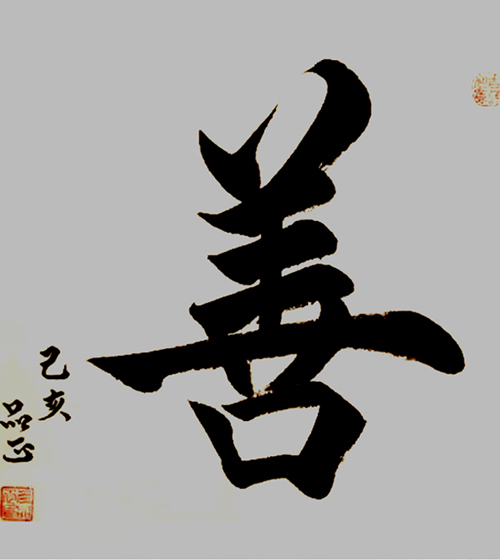 善
己亥
品正